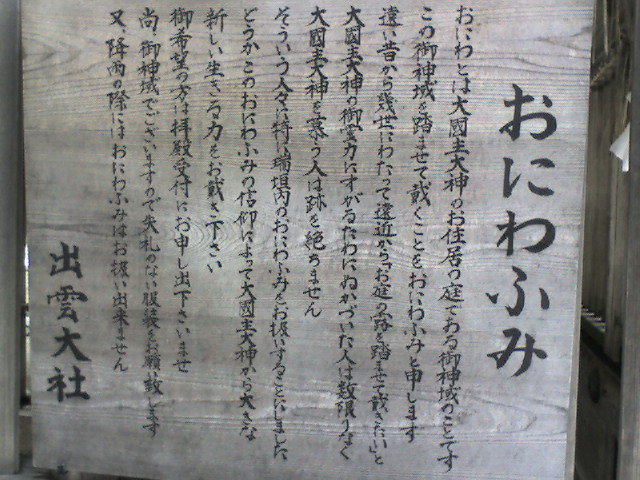 おにわふみ
おにわとは大國主大神のお住居の庭である御神域のことです
この御神域を踏ませて戴くことをおにわふみと申します
遠い昔から幾世にわたって遠近から「お庭の路を踏ませて戴きたい」と
大國主大神の御霊力にすがるためにぬかづいた人は数限りなく
大國主大神を慕う人は跡を絶ちません
そういう人々に特に瑞垣内のおにわふみをお扱いすることにしました
どうかこのおにわふみの信仰によって大國主大神から大きな
新しい生きる力をお戴き下さい
御希望の方は拝殿受付にお申し出下さいませ
尚、御神域でございますので失礼のない服装をお願い致します
又、降雨の際にはおにわふみはお扱い出来ません
出雲大社